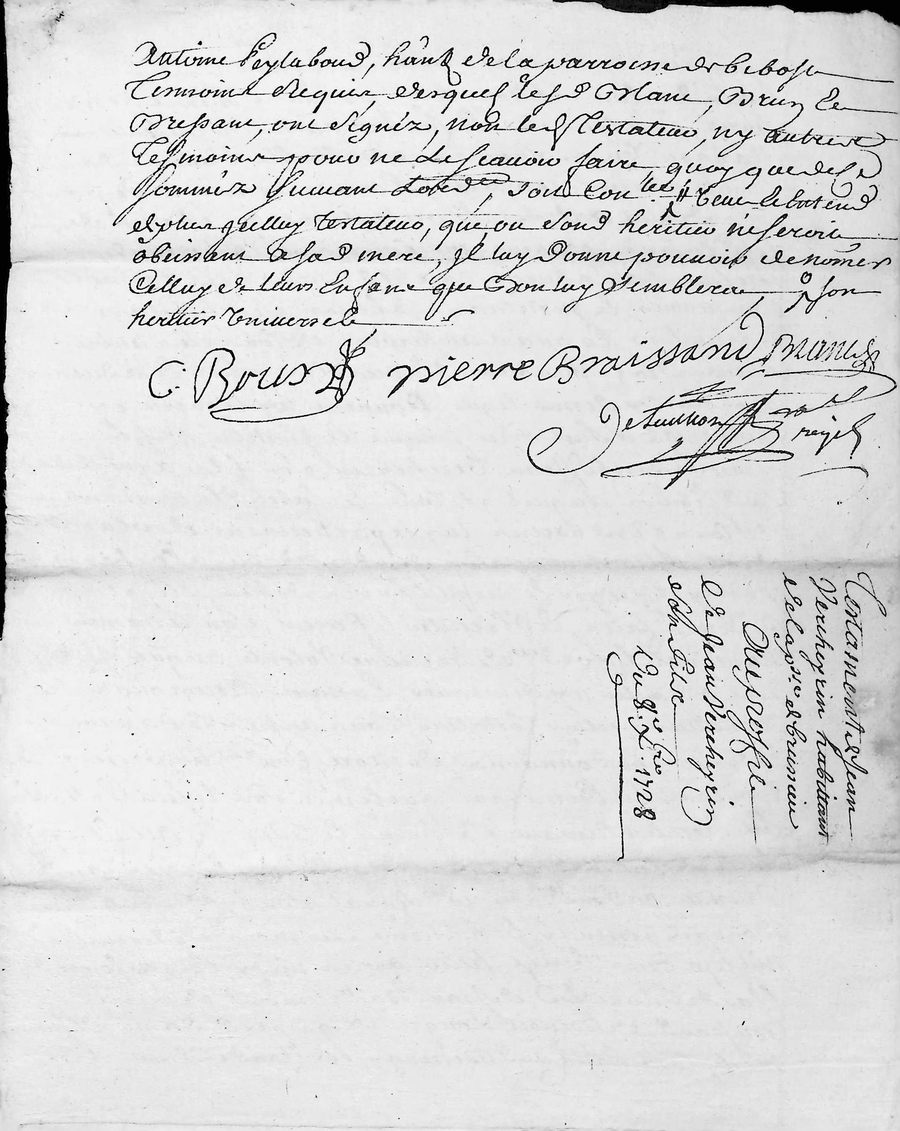 Antoine Peylaboud, hant de la parroesse de bibost
Tesmoins Requis, desquels led Blanc, Brun Le
Bressant, ont signéz, non led Testateur, ny autres
Tesmoins pour ne le scavoir faire, quoy que de ce
sommés suivant Lord.ce, soit Con.lee // veut Et entend
de plus jcelluy testateur, que ou sond heritier ne seroit
obeissant a sad mere, jl luy donne pouvoir de nomer
Celluy de leurs Enfans que bon luy semblera, pr son
heritier Universel
C: pierre Braissand Blanc
not. royal
Testament de Jean
Vercheyrin habittant
de la psse de brussieu
Au proffit
de Jean Vercheyrin
son fils
Du 8e 1728